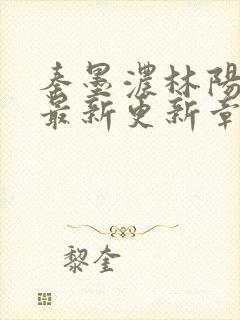 秦墨濃林陽
最新更新章
黎奎